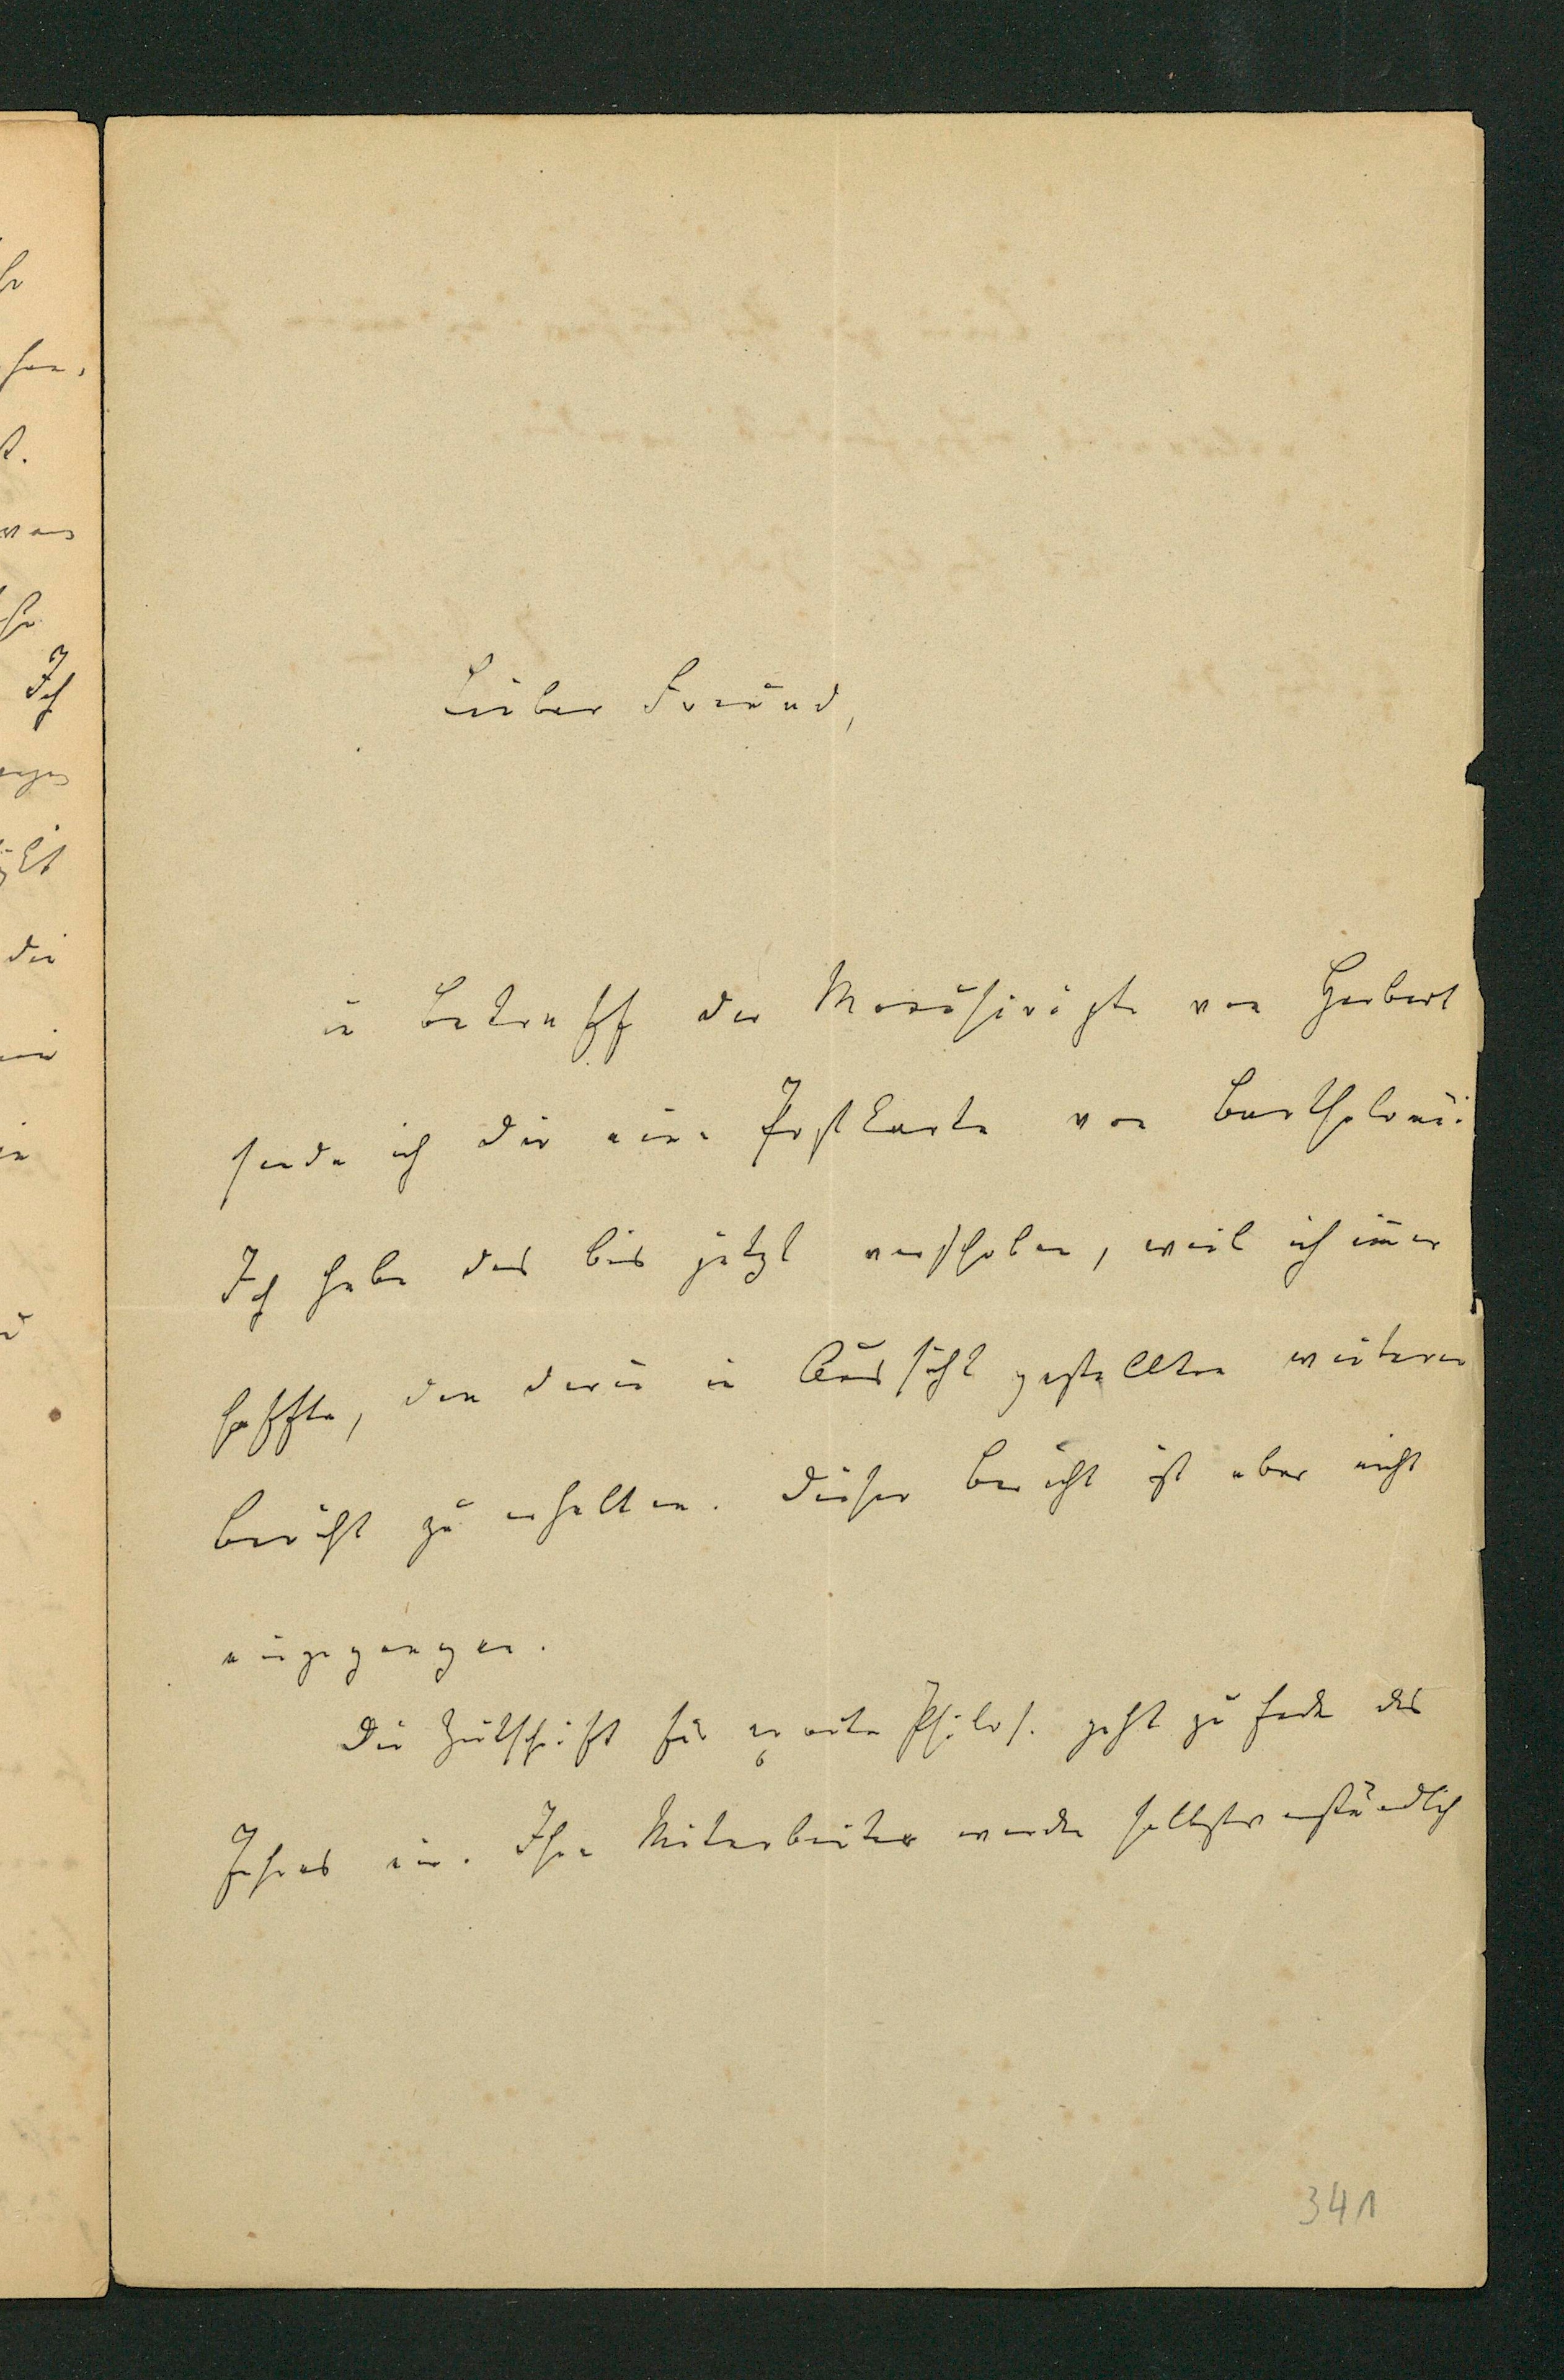 Lieber Freund,
in Betreff der von Herbart
sende ich Dir eine Postkarte von Bartholomäi
Ich habe das bis jetzt verschoben, weil ich immer
hoffte, den darin in Aussicht gestellten weiteren
Bericht zu erhalten. Dieser Bericht ist aber nicht
eingegangen.
Die Zeitschrift für exacte Philos. geht zu Ende des
Jahres ein. Ihre Mitarbeiter werden selbstverständlich
341
Ich
die